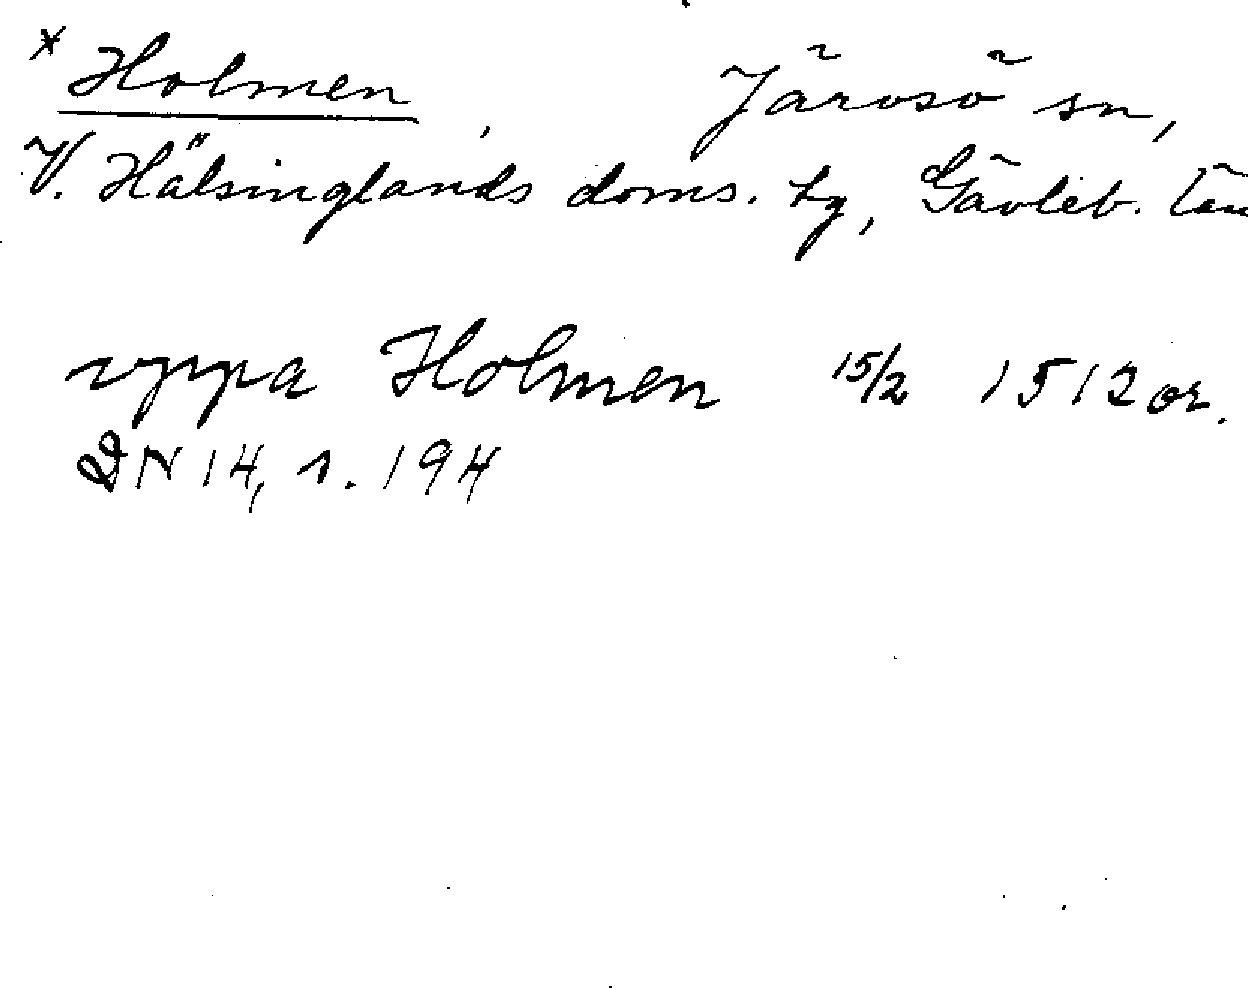 * Holmen, Järvsö sn,
V. Hälsinglands doms. tg, Gävleb. län
vppa Holmen 15/2 1512 or.
DN 14, s. 194